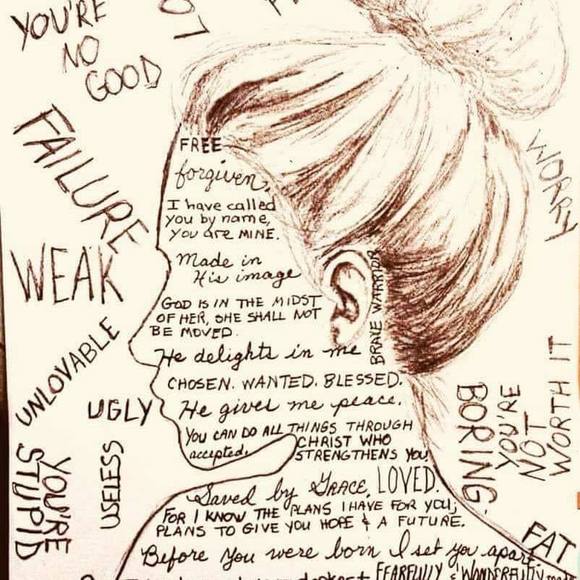 YOU'RE
NO
GOOD
FAILURE
WEAK
UNLOVABLE
UGLY
USELESS
YOU'RE
STUPID
FREE
forgiven,
I have called
you by name,
you are MINE.
Made in
His image
GOD IS IN THE MIDST
OF HER, SHE SHALL NOT
BE MOVED.
He delights in me
CHOSEN. WANTED. BLESSED.
He gives me peace.
YOU CAN DO ALL THINGS THROUGH
CHRIST WHO
accepted.
STRENGTHENS YOU
Saved by Grace. LOVED.
FOR I KNOW THE PLANS I HAVE FOR YOU,
PLANS TO GIVE YOU HOPE & A FUTURE.
Before you were born I set you apart
FEARFULLY & WONDERFULLY
BRAVE WARRIOR
WORRY
BORING.
YOU'RE
NOT
WORTH IT
FAT